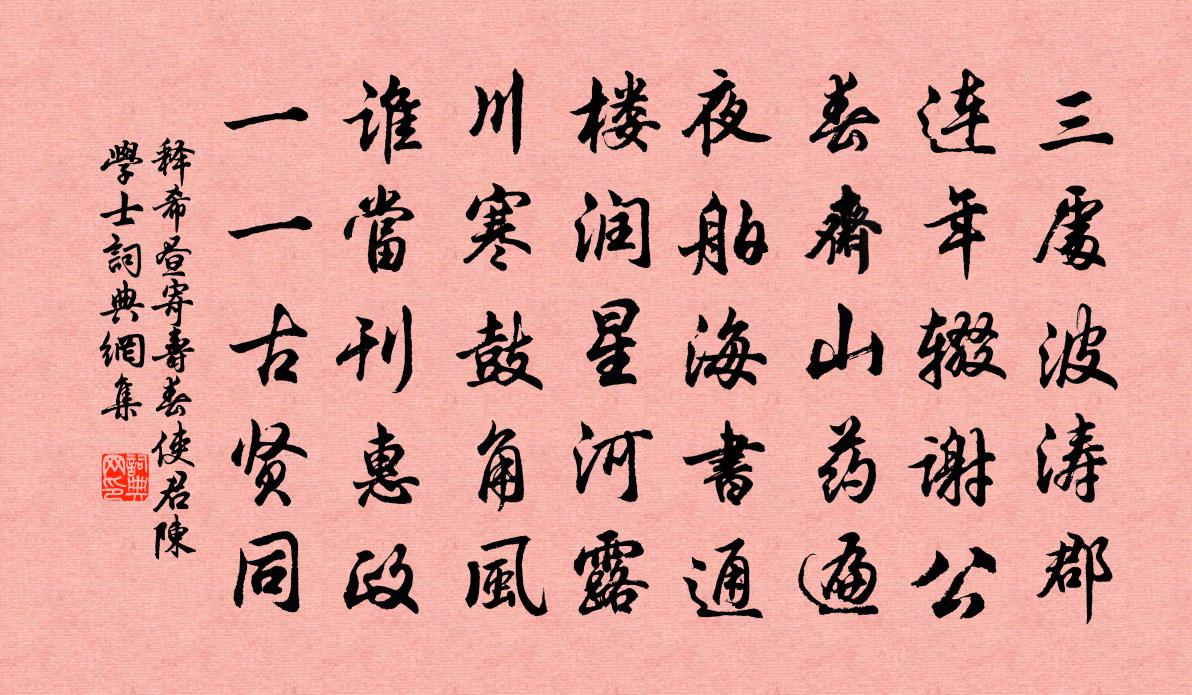 三處波涛郡
连年辍谢公
春齋山药遍
夜舶海書通
楼润星河露
川寒鼓角風
谁當刊惠政
一一古贤同
释希昼寄壽春使君陳
學士詞典網集
詞典网印